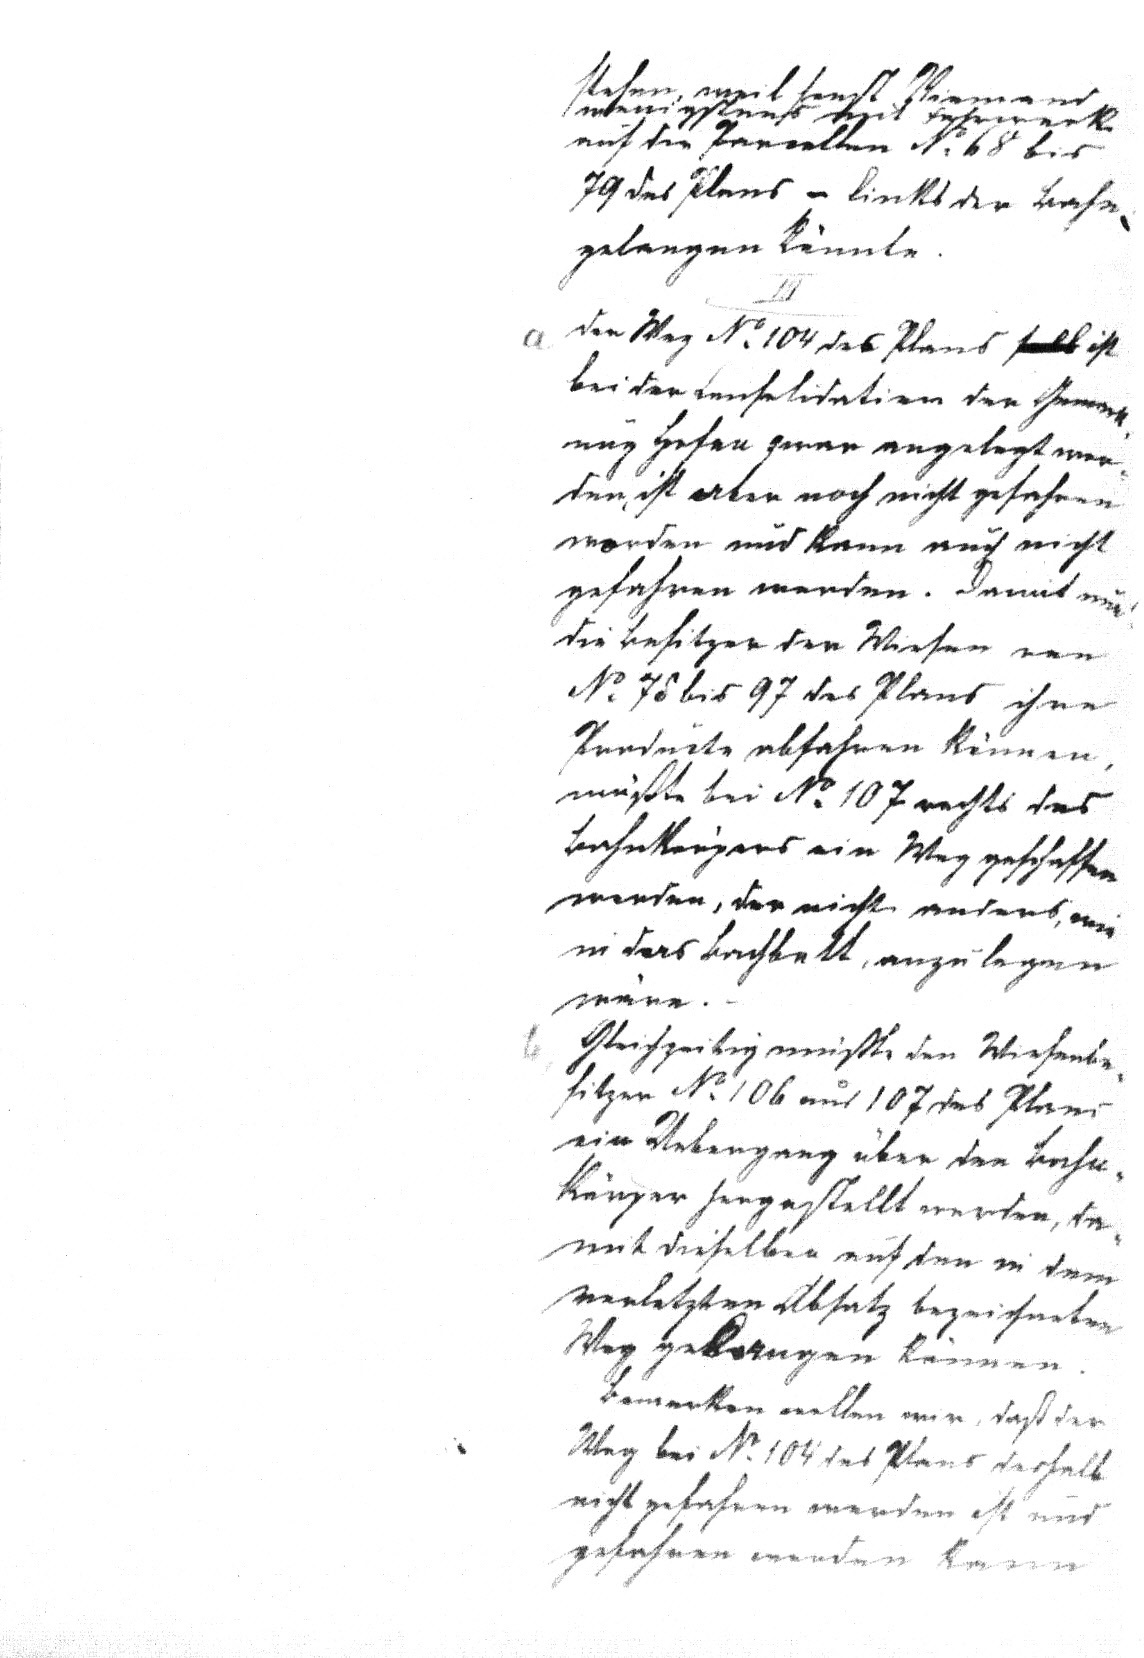 stehen, weil sonst Niemand
wenigstens mit Fuhrwerk
auf die Parcellen No. 68 bis
79 des Plans – links der Bahn,
gelangen könnte.
III
a
der Weg No. 104 des Plans ist
bei der Consolidation der Gemark-
ung Hofen zwar angelegt wor-
den, ist aber noch nicht gefahren
worden und kann auch nicht
gefahren werden. Damit nun
die Besitzer der Wiesen von
No. 78 bis 97 des Plans ihre
Producte abfahren können,
müßte bei No. 107 rechts des
Bahnkörpers ein Weg geschaffen
werden, der nicht anders, wie
in das Bachbett, anzulegen
wäre. –
b
Gleichzeitig müßte den Wiesenbe-
sitzer No. 106 und 107 des Plans
ein Uebergang über den Bahn-
körper hergestellt werden, da-
mit dieselben auf den in dem
vorletzten Absatz bezeichneten
Weg gelangen können.
Bemerken wollen wir, daß der
Weg bei No. 104 des Plans deshalb
nicht gefahren worden ist und
gefahren werden kann